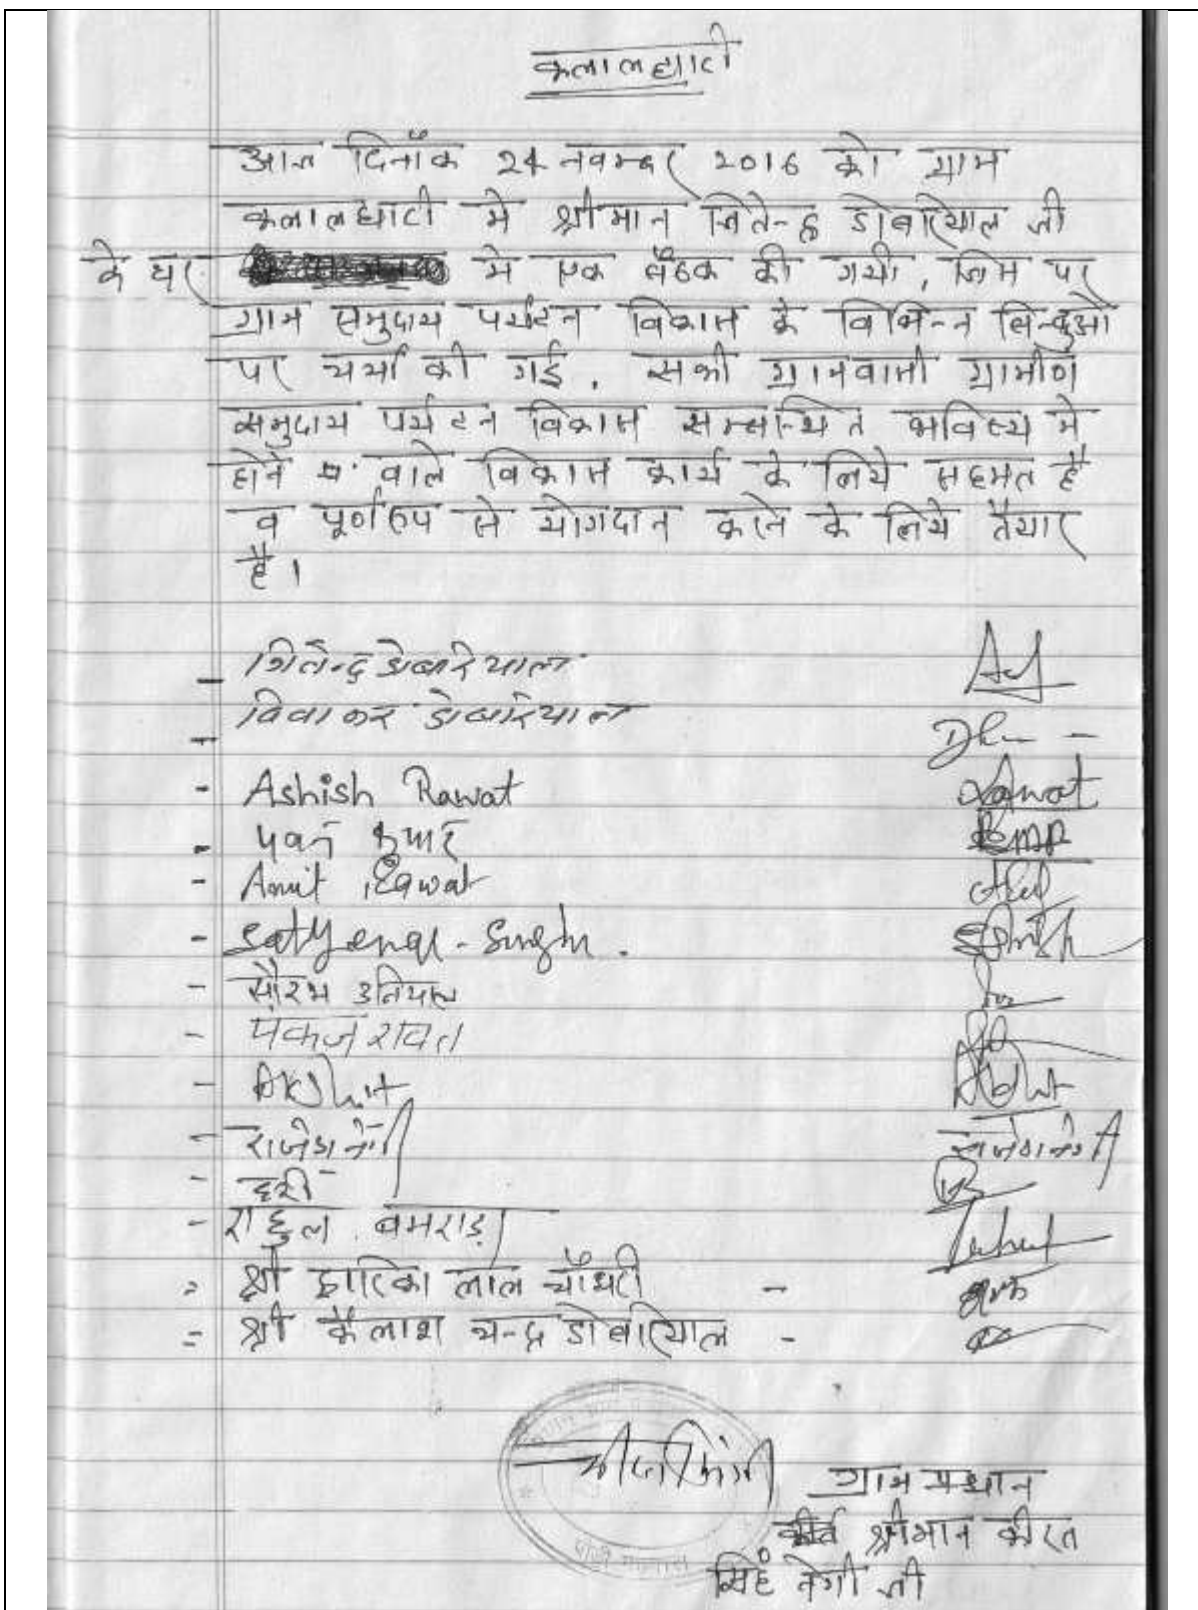 कलालघाटी
आज दिनाँक 24 नवम्बर 2016 को ग्राम
कलालघाटी मे श्रीमान जितेन्द्र डोबरियाल जी
के घर मे एक बैठक की गयी, जिस पर
ग्राम समुदाय पर्यटन विकास के विभिन्न बिन्दुओ
पर चर्चा की गई. सभी ग्रामवासी ग्रामीण
समुदाय पर्यटन विकास सम्बन्धित भविष्य मे
होने वाले विकास कार्य के लिये सहमत है
व पूर्णरुप से योगदान करने के लिये तैयार
है।
- जितेन्द्र डोबरियाल
- दिवाकर डोबरियाल
- Ashish Rawat Rawat
- पवन कुमार
- Amit Rawat
- Satyendr - Singh.
- सौरभ उनियाल
- पंकज रावत
- Akshit
- राजेश नेगी राजेश नेगी
- हरी
- राहुल बमराड़ा Rahul
= श्री द्वारिका लाल चौधरी -
= श्री कैलाश चन्द्र डोबरियाल -
ग्राम प्रधान
श्रीमान कीरत
सिंह नेगी जी